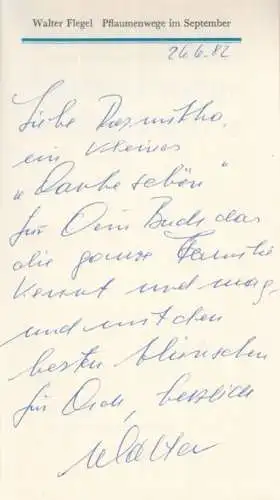 Walter Flegel Pflaumenwege im September
26.6.82
Liebe Rosmitha,
ein kleines
„Danke schön“
für Dein Buch das
die ganze Familie
kennt und mag
und mit den
besten Wünschen
für Dich, herzlich
Walter